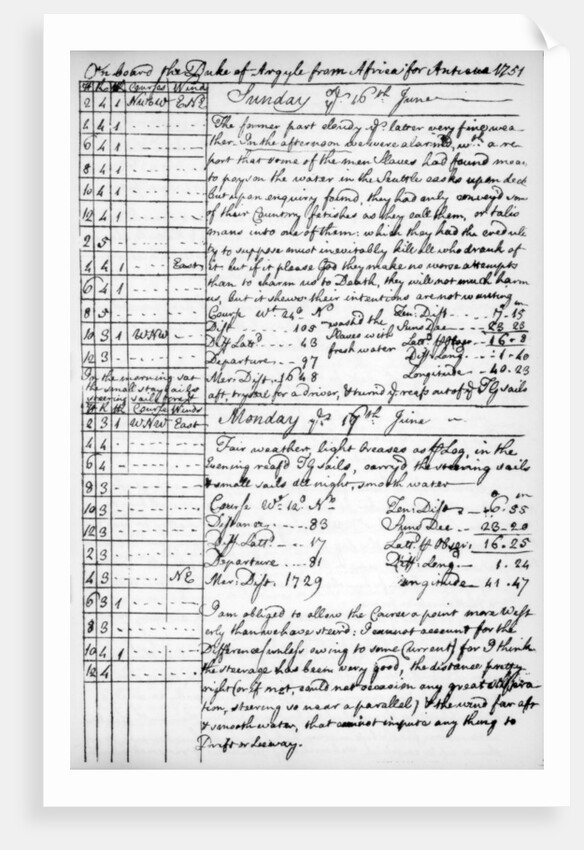 On board the Duke of Argyle from Africa for Antigua 1751
H K Courses Winds
Sunday ye 16th June
2 4 1 NWbW ENE
4 4 1 The former part cloudy ye latter very fine wea
6 4 1 ther. In the afternoon we were alarm'd wth a re
8 4 1 port that some of the men Slaves had found means
10 4 1 to poyson the water in the Scuttle casks upon deck
but upon enquiry found, they had only convey'd some
12 4 1 of their Country fetishes as they call them, or talis
2 5 mans into one of them, which they had the creduli
ty to suppose must inevitably kill all who drank of
4 4 1 East it. but if it please God they make no worse attempts
6 4 1 than to charm us to Death, they will not much harm
us, but it shews their intentions are not wanting
8 5 Course Wt 24° No Zen: Dist 7.15
10 3 1 WNW Dist 105 wash'd the Suns Dec 23.23
Diff Latd 43 Slaves with Latd 16-8
12 3 Departure 97 fresh water Diff Long 1.40
In the morning sat Mer: Dist 1648 Longitude 40.23
the small stay sails
steering sail aft, trysail for a driver, & turn'd ye reefs out of ye TG sails
H K Course Winds
Monday ye 17th June
2 3 1 WNW East
4 4 Fair weather, light breases as Log, in the
6 4 Evening reef'd TG sails, carry'd the steering sails
8 3 & small sails all night, smooth water
10 3 Course Wt 12° No Zen: Dist 6.35
12 3 Distance 83 Suns Dec 23.20
Diff Latd 17 Latd Observ: 16.25
2 3 Departure 81 Diff: Long 1.24
4 3 NE Mer: Dist. 1729 Longitude 41.47
6 3 1 I am obliged to allow the Course a point more West
8 3 erly than we have steer'd; I cannot account for the
10 4 1 Difference (unless owing to some Current) for I think
12 4 the steerage has been very good, the distance pretty
right (or if not, could not occasion any great
tion, steering so near a parallel) & the wind far aft
& smooth water, that cannot impute any thing to
Drift or Leeway.